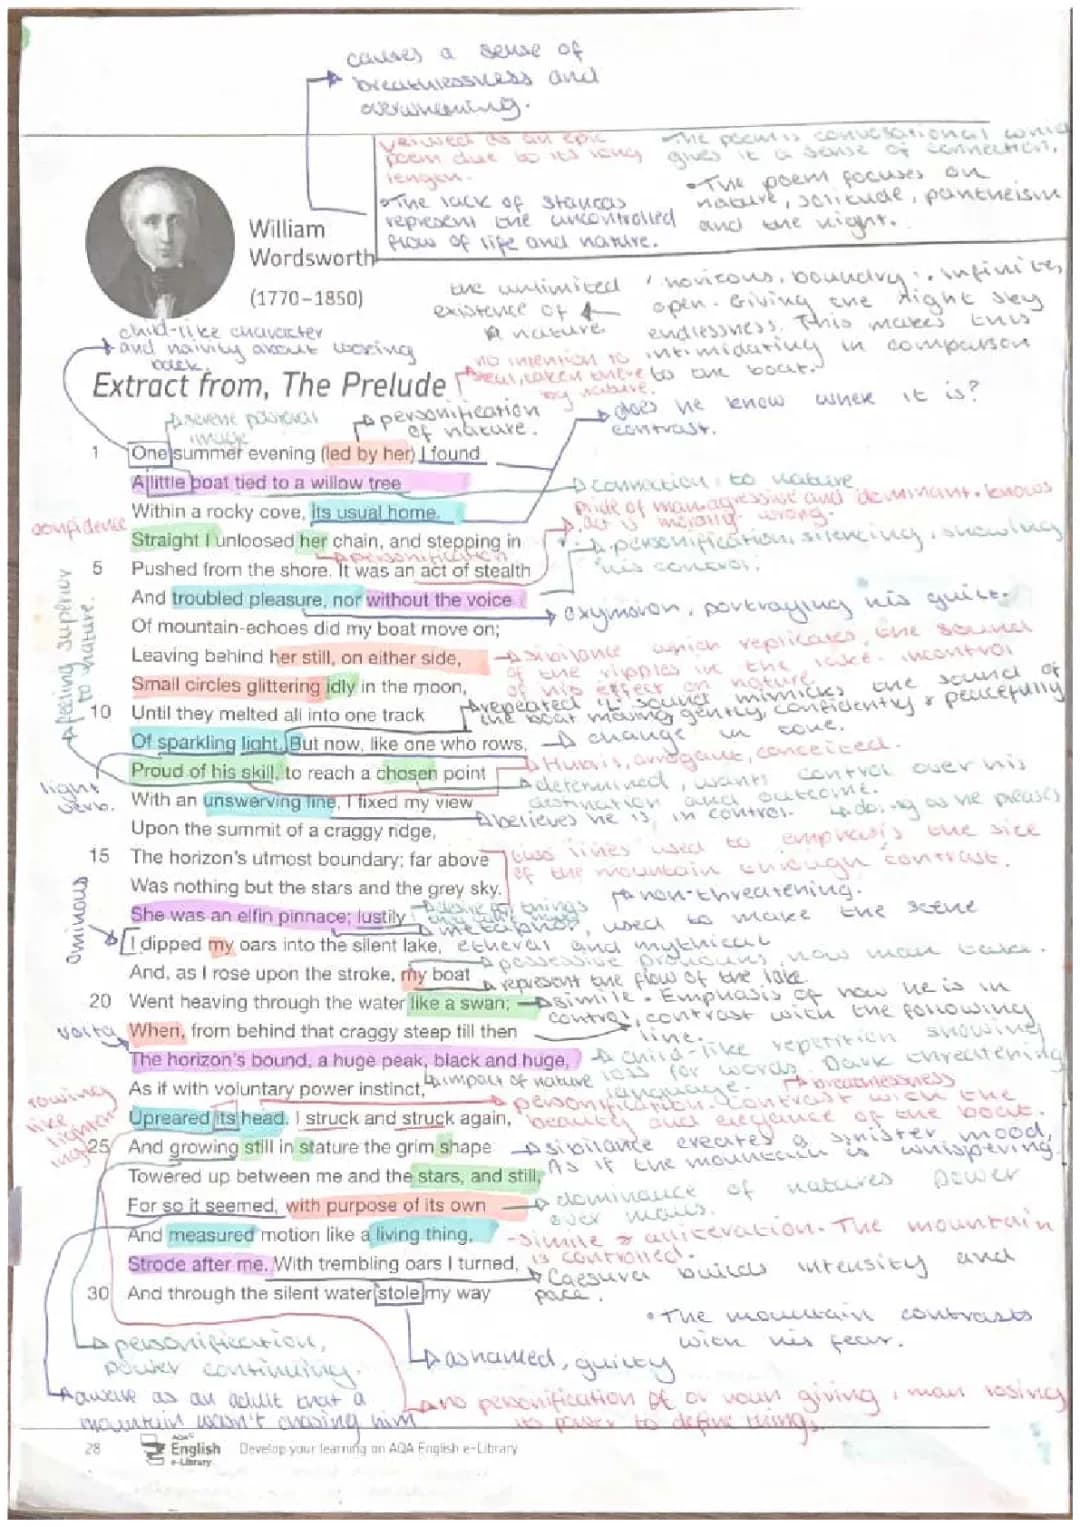 causes a sense of
breathlessness and
overwhelming.
viewed as an epic
poem due to its long
• The poem is conversational which
gives it a sense of connection.
• The lack of stanzas
represent the uncontrolled
flow of life and nature.
• The poem focuses on
nature, solitude, pantheism
and the night.
William
Wordsworth
(1770–1850)
the unlimited
existence of
nature
horizons, boundry: infinite,
open. Giving the night sky
endlessness. This makes this
intimidating in comparison
to the boat.
child-like character
and naivity about
back.
no intention to
steal, taken there
by nature.
Extract from, The Prelude
serene pastoral
image
personification
of nature.
does he know where it is?
contrast.
1 One summer evening (led by her) I found
A little boat tied to a willow tree
connection to nature
Within a rocky cove, its usual home.
confidence
pride of man. agressive and dominant. knows
act is morally wrong.
Straight I unloosed her chain, and stepping in
personification
personification, silencing, showing
his control.
5 Pushed from the shore. It was an act of stealth
And troubled pleasure, nor without the voice
oxymoron, portraying his guilt.
Of mountain-echoes did my boat move on;
feeling superior
to nature.
Leaving behind her still, on either side,
sibilance which replicates the sound
of the ripples in the lake. incontrol
of his effect on nature.
Small circles glittering idly in the moon,
repeated 'L' sound mimicks the sound of
the boat moving gently, confidently & peacefully
10 Until they melted all into one track
Of sparkling light. But now, like one who rows,
change in tone.
Proud of his skill, to reach a chosen point
Hubris, arrogant, conceited.
determined, wants control over his
destination and outcome.
light
verb.
With an unswerving line, I fixed my view
believes he is in control.
doing as he pleases
Upon the summit of a craggy ridge,
two lines used to emphasis the size
of the mountain through contrast.
15 The horizon's utmost boundary; far above
Was nothing but the stars and the grey sky.
non-threatening.
She was an elfin pinnace; lustily
metaphor, used to make the scene
etheral and mythical
ominous
I dipped my oars into the silent lake,
possessive pronouns, now man
And, as I rose upon the stroke, my boat
represent the flow of the lake
20 Went heaving through the water like a swan;
simile. Emphasis of how he is in
control, contrast with the following
line.
volta
When, from behind that craggy steep till then
The horizon's bound, a huge peak, black and huge,
child-like repetition showing
loss for words. Dark threatening
language.
As if with voluntary power instinct,
impact of nature
breathlessness
personification. contrast with the
beauty and elegance of the boat.
Upreared its head. I struck and struck again,
25 And growing still in stature the grim shape
sibilance creates a sinister mood,
As if the mountain is whispering.
Towered up between me and the stars, and still,
dominance of natures power
over mans.
For so it seemed, with purpose of its own
And measured motion like a living thing,
simile & aliteration. The mountain
is controlled.
Strode after me. With trembling oars I turned,
Caesura builds intensity and
pace.
30 And through the silent water stole my way
• The mountain contrasts
with his fear.
personification,
power continuing.
ashamed, guilty
aware as an adult that a
mountain wasn't chasing him
no personification of or noun giving, man losing
its power to define things.
28
AQA
English
e-Library
Develop your learning on AQA English e-Library